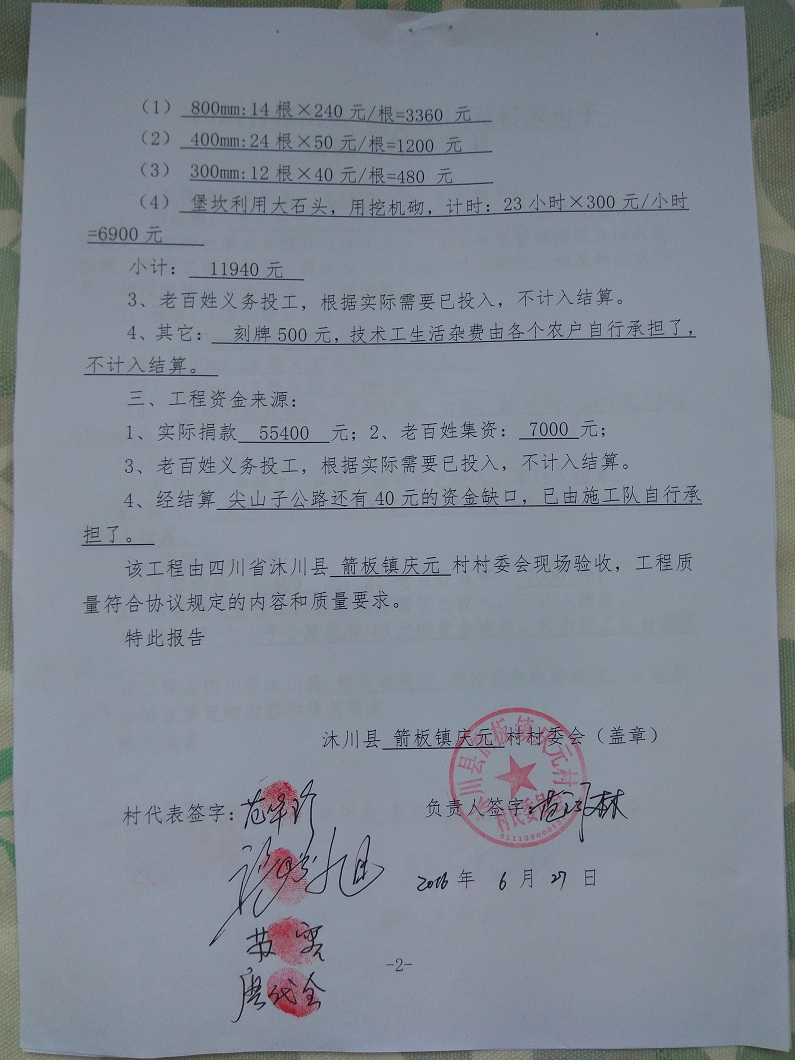 （1） 800mm:14 根×240 元/根=3360 元
（2） 400mm:24 根×50 元/根=1200 元
（3） 300mm:12 根×40 元/根=480 元
（4） 堡坎利用大石头，用挖机砌，计时：23 小时×300 元/小时
=6900 元
小计： 11940 元
3、老百姓义务投工，根据实际需要已投入，不计入结算。
4、其它： 刻牌 500 元，技术工生活杂费由各个农户自行承担了，
不计入结算。
三、工程资金来源：
1、实际捐款 55400 元；2、老百姓集资： 7000 元；
3、老百姓义务投工，根据实际需要已投入，不计入结算。
4、经结算 尖山子公路还有 40 元的资金缺口，已由施工队自行承
担了。
该工程由四川省沐川县 箭板镇庆元 村村委会现场验收，工程质
量符合协议规定的内容和质量要求。
特此报告
沐川县 箭板镇庆元 村村委会（盖章）
沐川县箭板镇庆元村
村民委员会
村代表签字：范泽珍
负责人签字：
2016 年 6 月 27 日
苏
唐代全
-2-